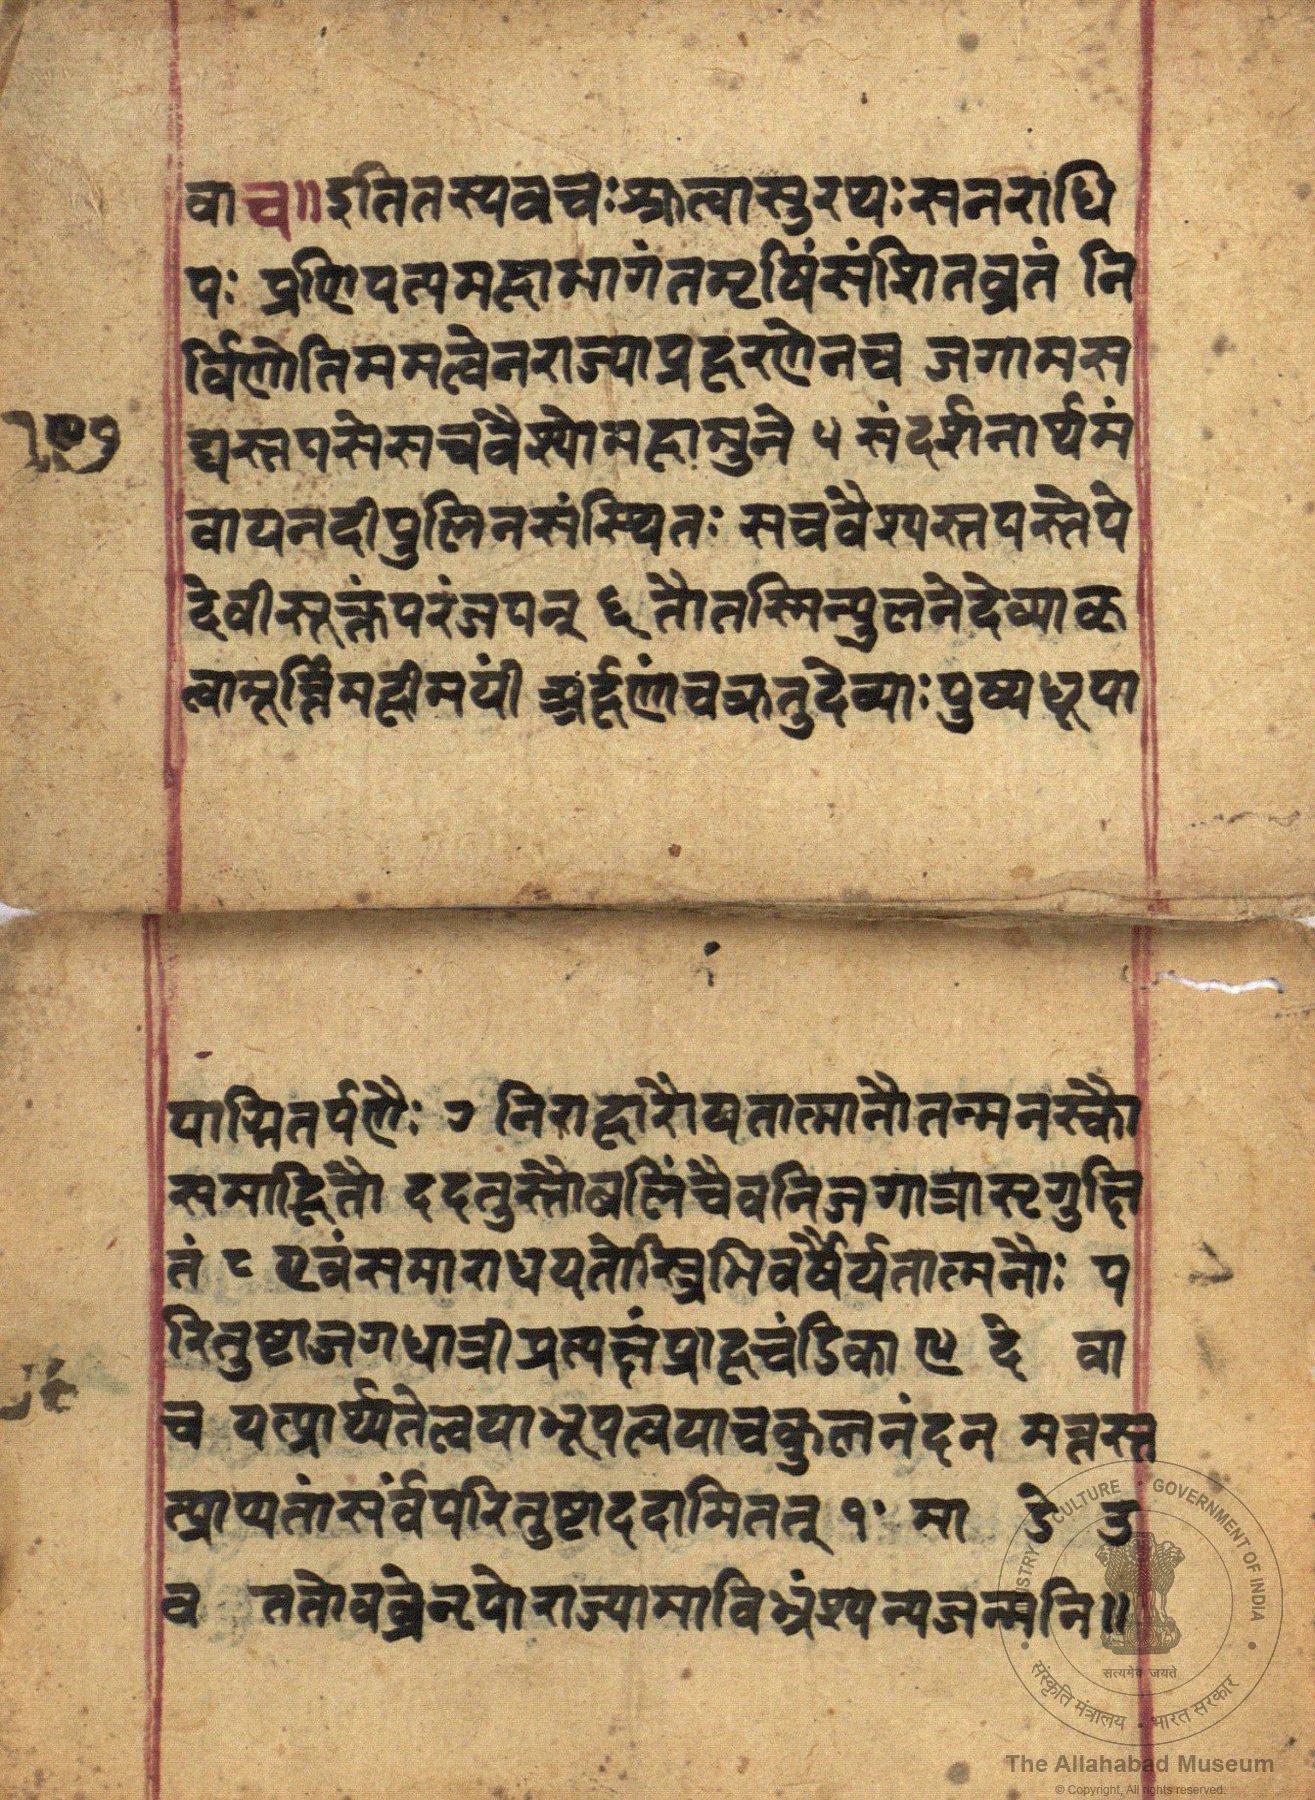 वाच॥इतितस्यवचःश्रुत्वासुरथःसनराधि
पः प्रणिपत्यमहाभागंतमृषिंसंशितव्रतं नि
र्विणोतिममत्वेनराज्याप्रहरणेनच जगामस
द्यस्तपसेसचवैश्योमहामुने ५ संदर्शनार्थमं
वायनदीपुलिनसंस्थितः सचवैश्यस्तपस्तेपे
देवीसूक्तंपरंजपन् ६ तौतस्मिन्पुलनेदेव्याकृ
त्वामूर्त्तिंमहीमयीं अर्हणांचक्रतुदेव्याः पुष्यधूपा
पाग्नितर्पणैः ७ निराहारौयतात्मानौतन्मनस्कौ
समाहितौ ददतुस्तौबलिंचैवनिजगात्रासृगुक्षि
तं ८ एवंसमाराधयतोस्त्रिभिवर्षैर्यतात्मनौः प
रितुष्टाजगधात्रीप्रत्यक्षंप्राहचंडिका ९ दे वा
च यत्प्रार्थ्यतेत्वयाभूपत्वयाचकुलनंदन मत्तस्त
त्प्राप्यतांसर्वंपरितुष्टाददामितत् १॰ मा डे उ
व ततोवव्रेनृपोराज्यामाविभ्रंश्यन्यजन्मनि॥
संस्कृति मंत्रालय • भारत सरकार
MINISTRY OF CULTURE GOVERNMENT OF INDIA
सत्यमेव जयते
The Allahabad Museum
© Copyright, All rights reserved.